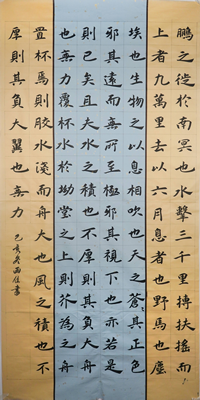 鵬之徙於南冥也水擊三千里摶扶搖而
上者九萬里去以六月息者也野馬也塵
埃也生物之以息相吹也天之蒼〻其正色
邪其遠而無所至極邪其視下也亦若是
則已矣且夫水之積也不厚則其負大舟
也無力覆杯水於坳堂之上則芥為之舟
置杯焉則膠水淺而舟大也風之積也不
厚則其負大翼也無力
己亥